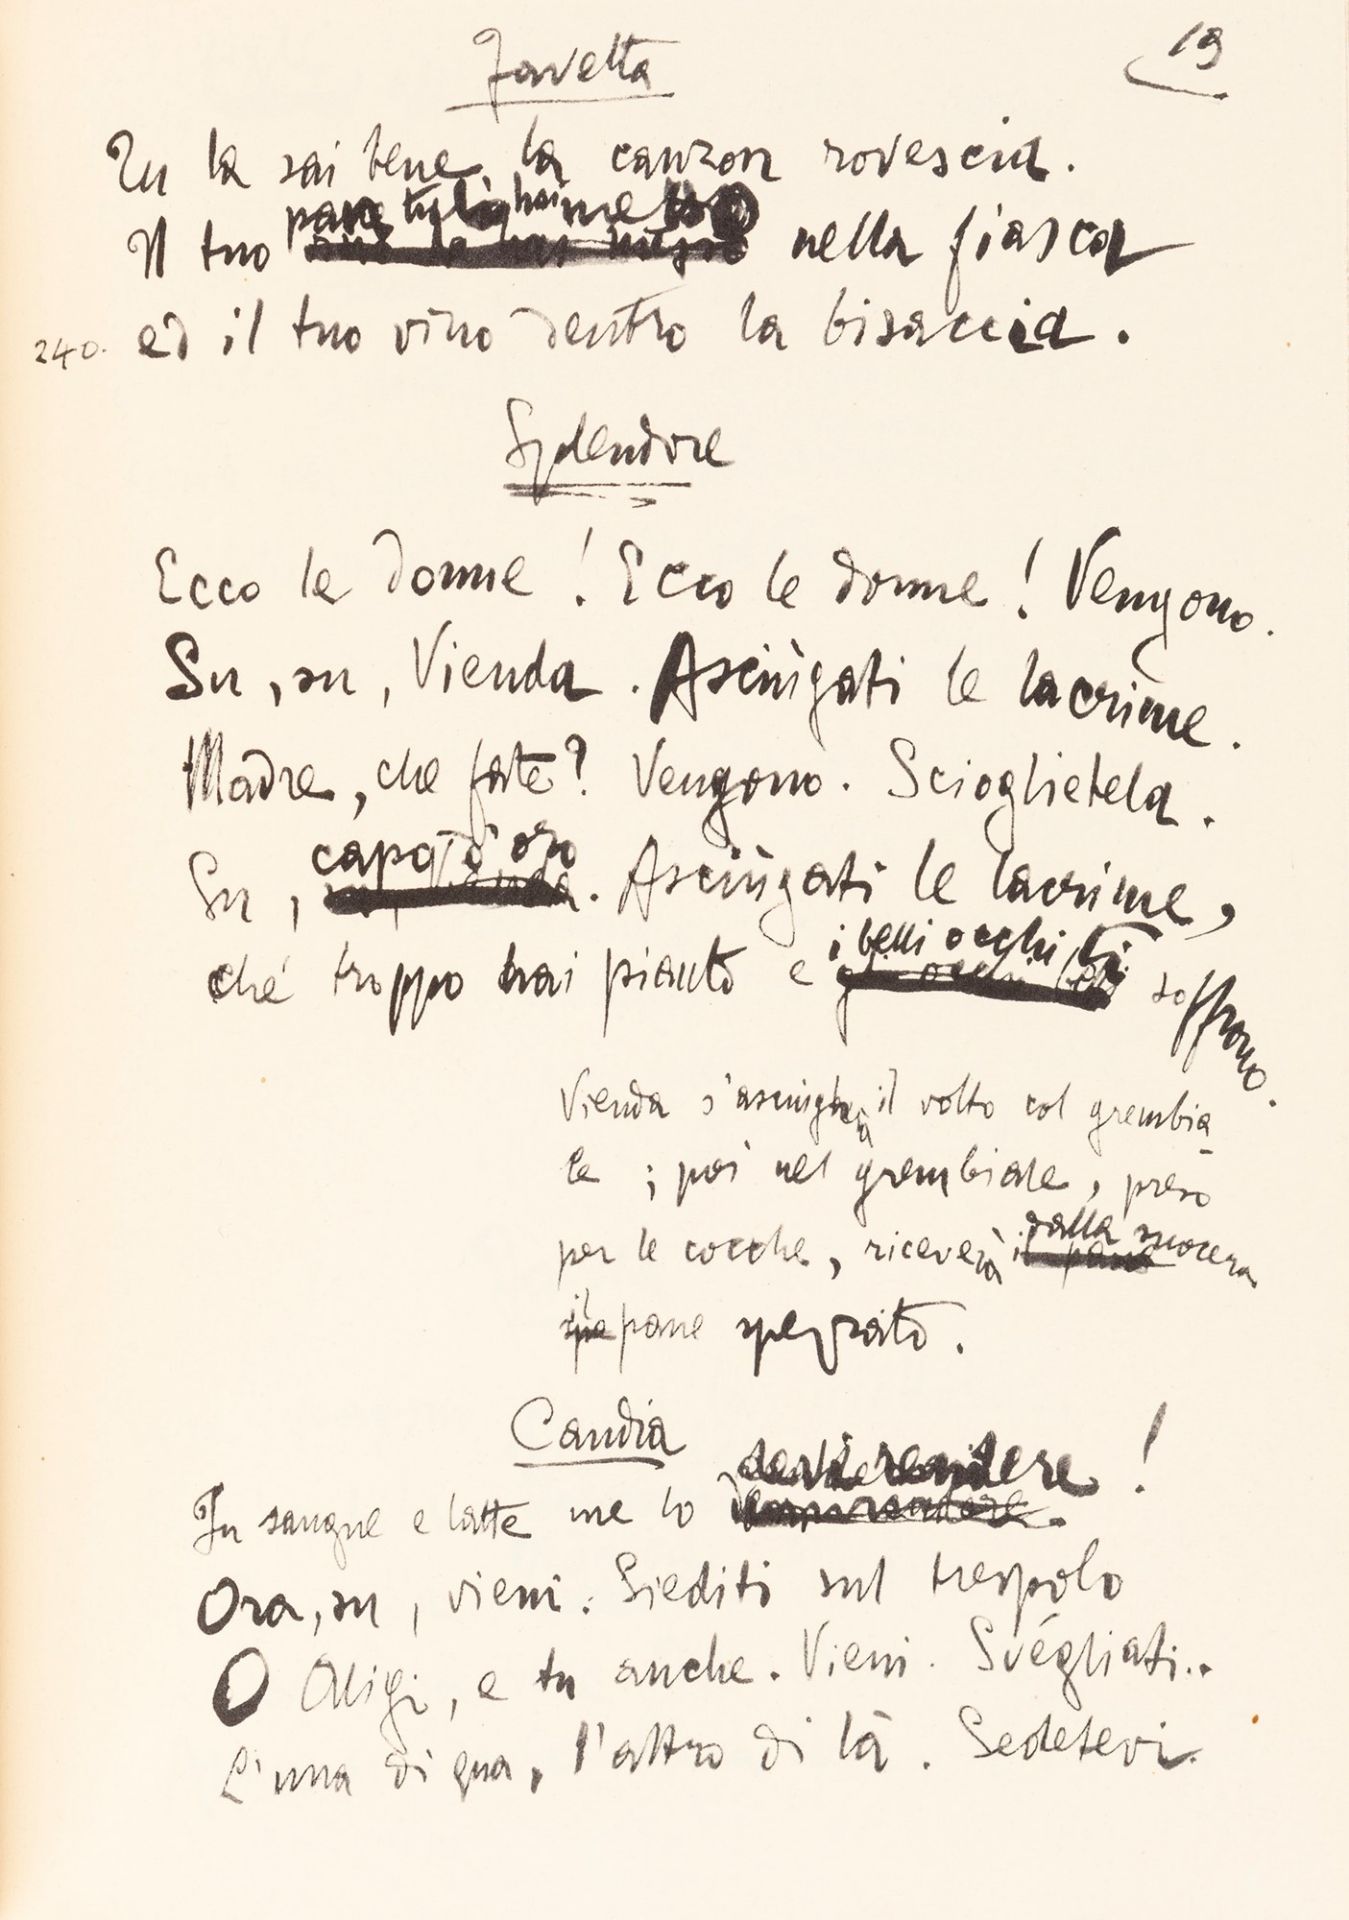 19
Favetta
Tu la sai bene la canzon rovescia.
pane tu l'hai messo
Il tuo nella fiasca
240. ed il tuo vino dentro la bisaccia.
Splendore
Ecco le donne! Ecco le donne! Vengono.
Su, su, Vienda. Asciùgati le lacrime.
Madre, che fate? Vengono. Scioglietela.
capo d'oro
Su, . Asciùgati le lacrime,
i belli occhi ti
ché troppo hai pianto e soffrono.
Vienda s'asciugherà il volto col grembia
le ; poi nel grembiale, preso
dalla suocera
per le cocche, riceverà
il pane spezzato.
Candia
devi rendere!
In sangue e latte me lo
Ora, su, vieni. Siediti sul trespolo
O Aligi, e tu anche. Vieni. Svégliati..
L'una di qua, l'altro di là. Sedetevi.